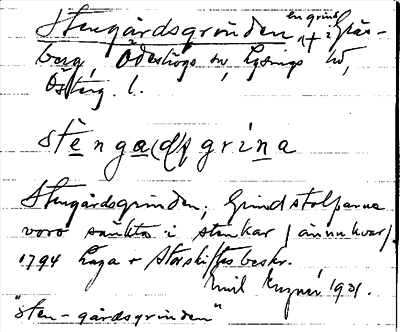 Stengårdsgrinden, en grind i Gräs-
berg, Ödeshögs sn, Lysings hd,
Östg. l.
stènga(d)grìna
Stengårdsgrinden; Grindstolparna
voro sänkta i stenkar (ännu kvar).
1794 Laga + Storskiftes beskr.
Emil 1931.
"sten-gårdsgrinden"